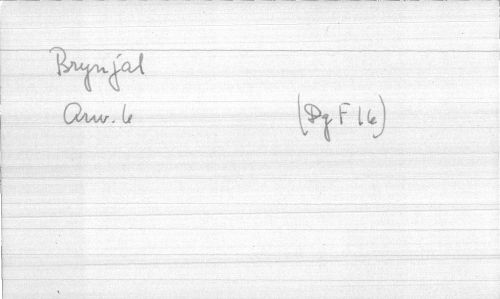 Brynjal
Anv. 6 (Dg F 16)